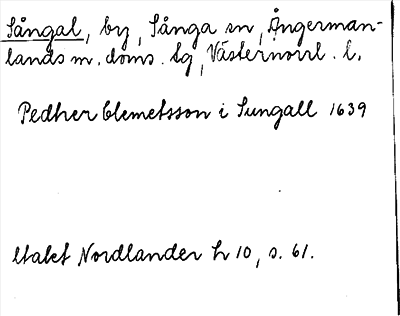 Sångal, by, Sånga sn, Ångerman-
lands m. doms. lg, Västernorrl. l.
Pedher Clemetsson i Sungall 1639
Utalet Nordlander h 10, s. 61.